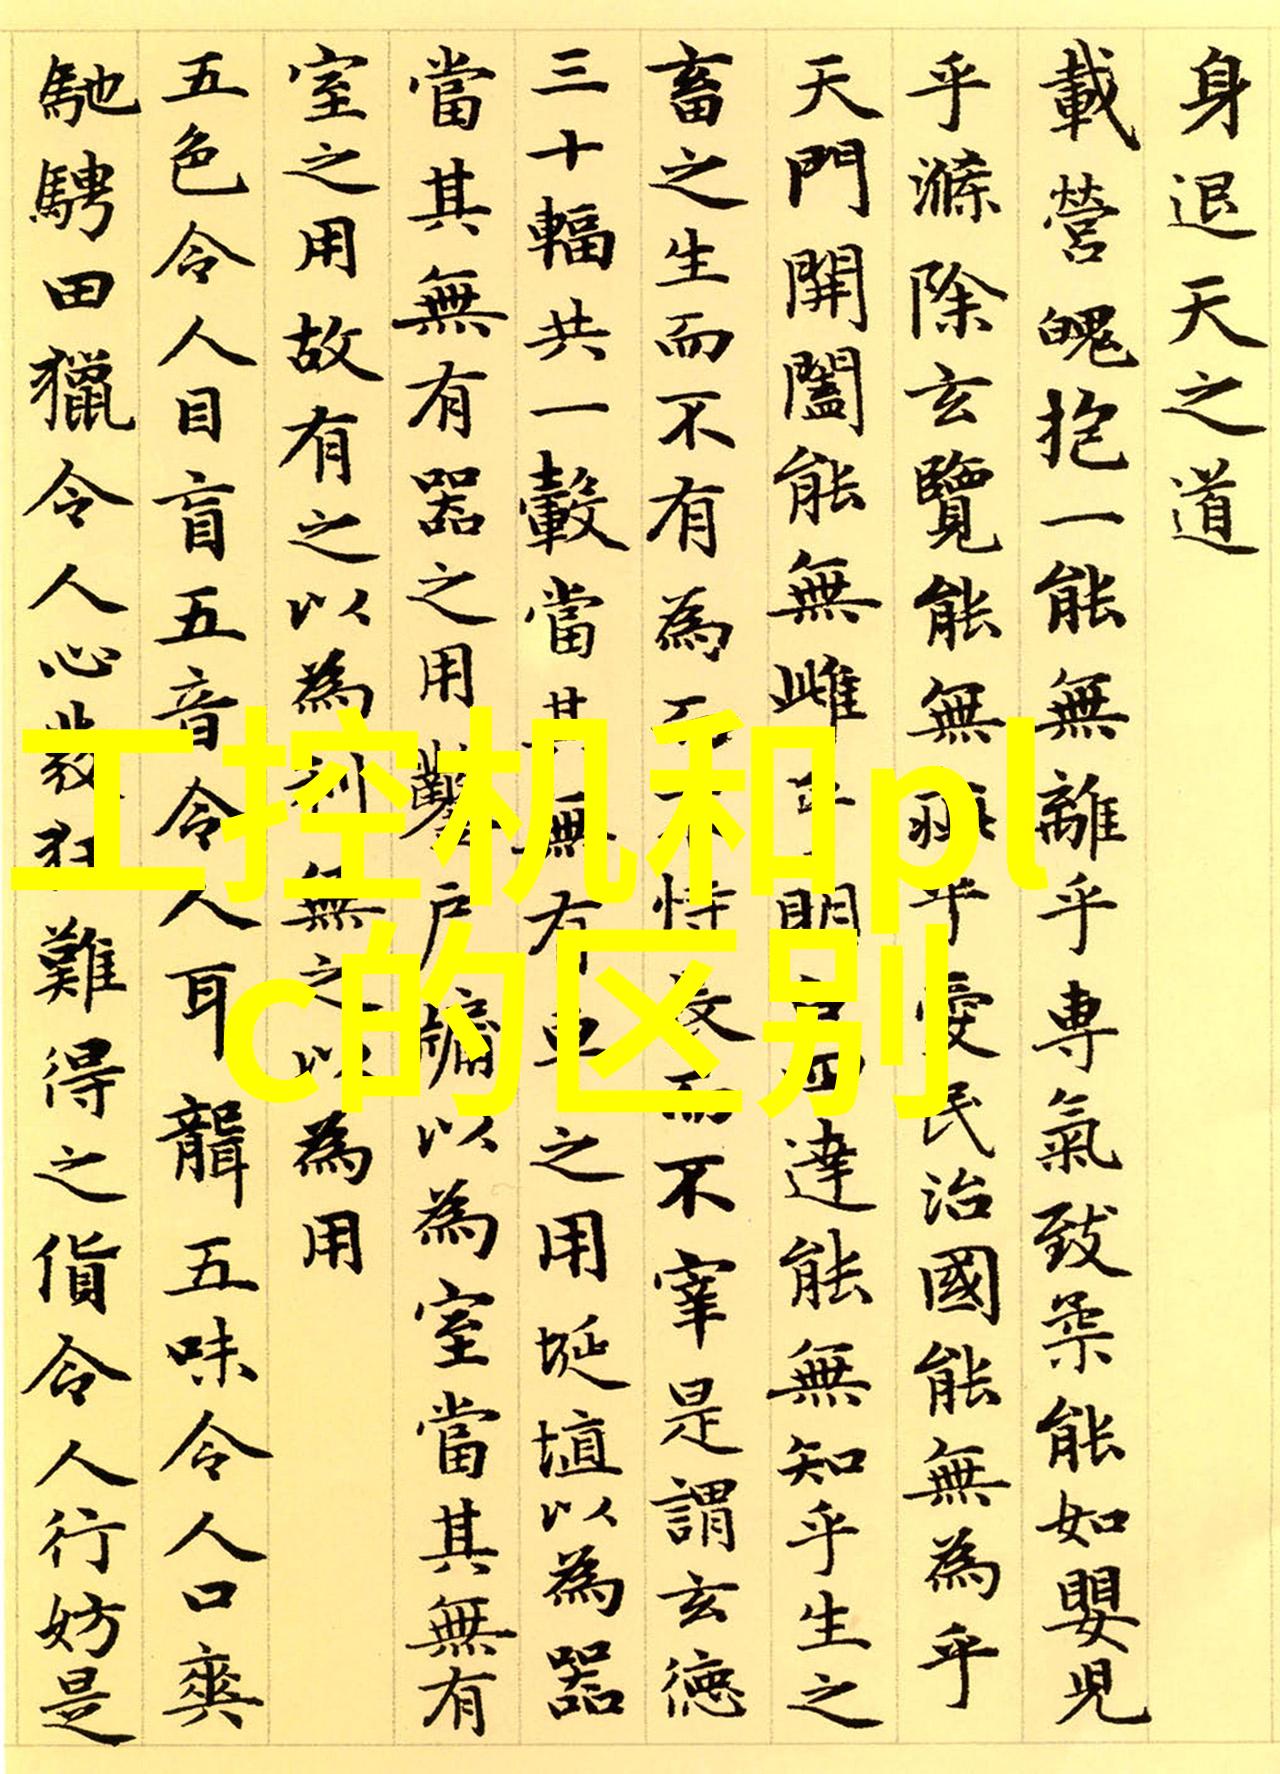 身退天之道
載營魄抱一能無離乎專氣致柔能如嬰兒
乎滌除玄覽能無疵乎愛民治國能無為乎
天門開闔能無雌乎明白四達能無知乎生之
畜之生而不有為而不恃長而不宰是謂玄德
三十輻共一轂當其無有車之用埏埴以為器
當其無有器之用鑿戶牖以為室當其無有
室之用故有之以為利無之以為用
五色令人目盲五音令人耳聾五味令人口爽
馳騁田獵令人心發狂難得之貨令人行妨是
工控机和pl
c的区别